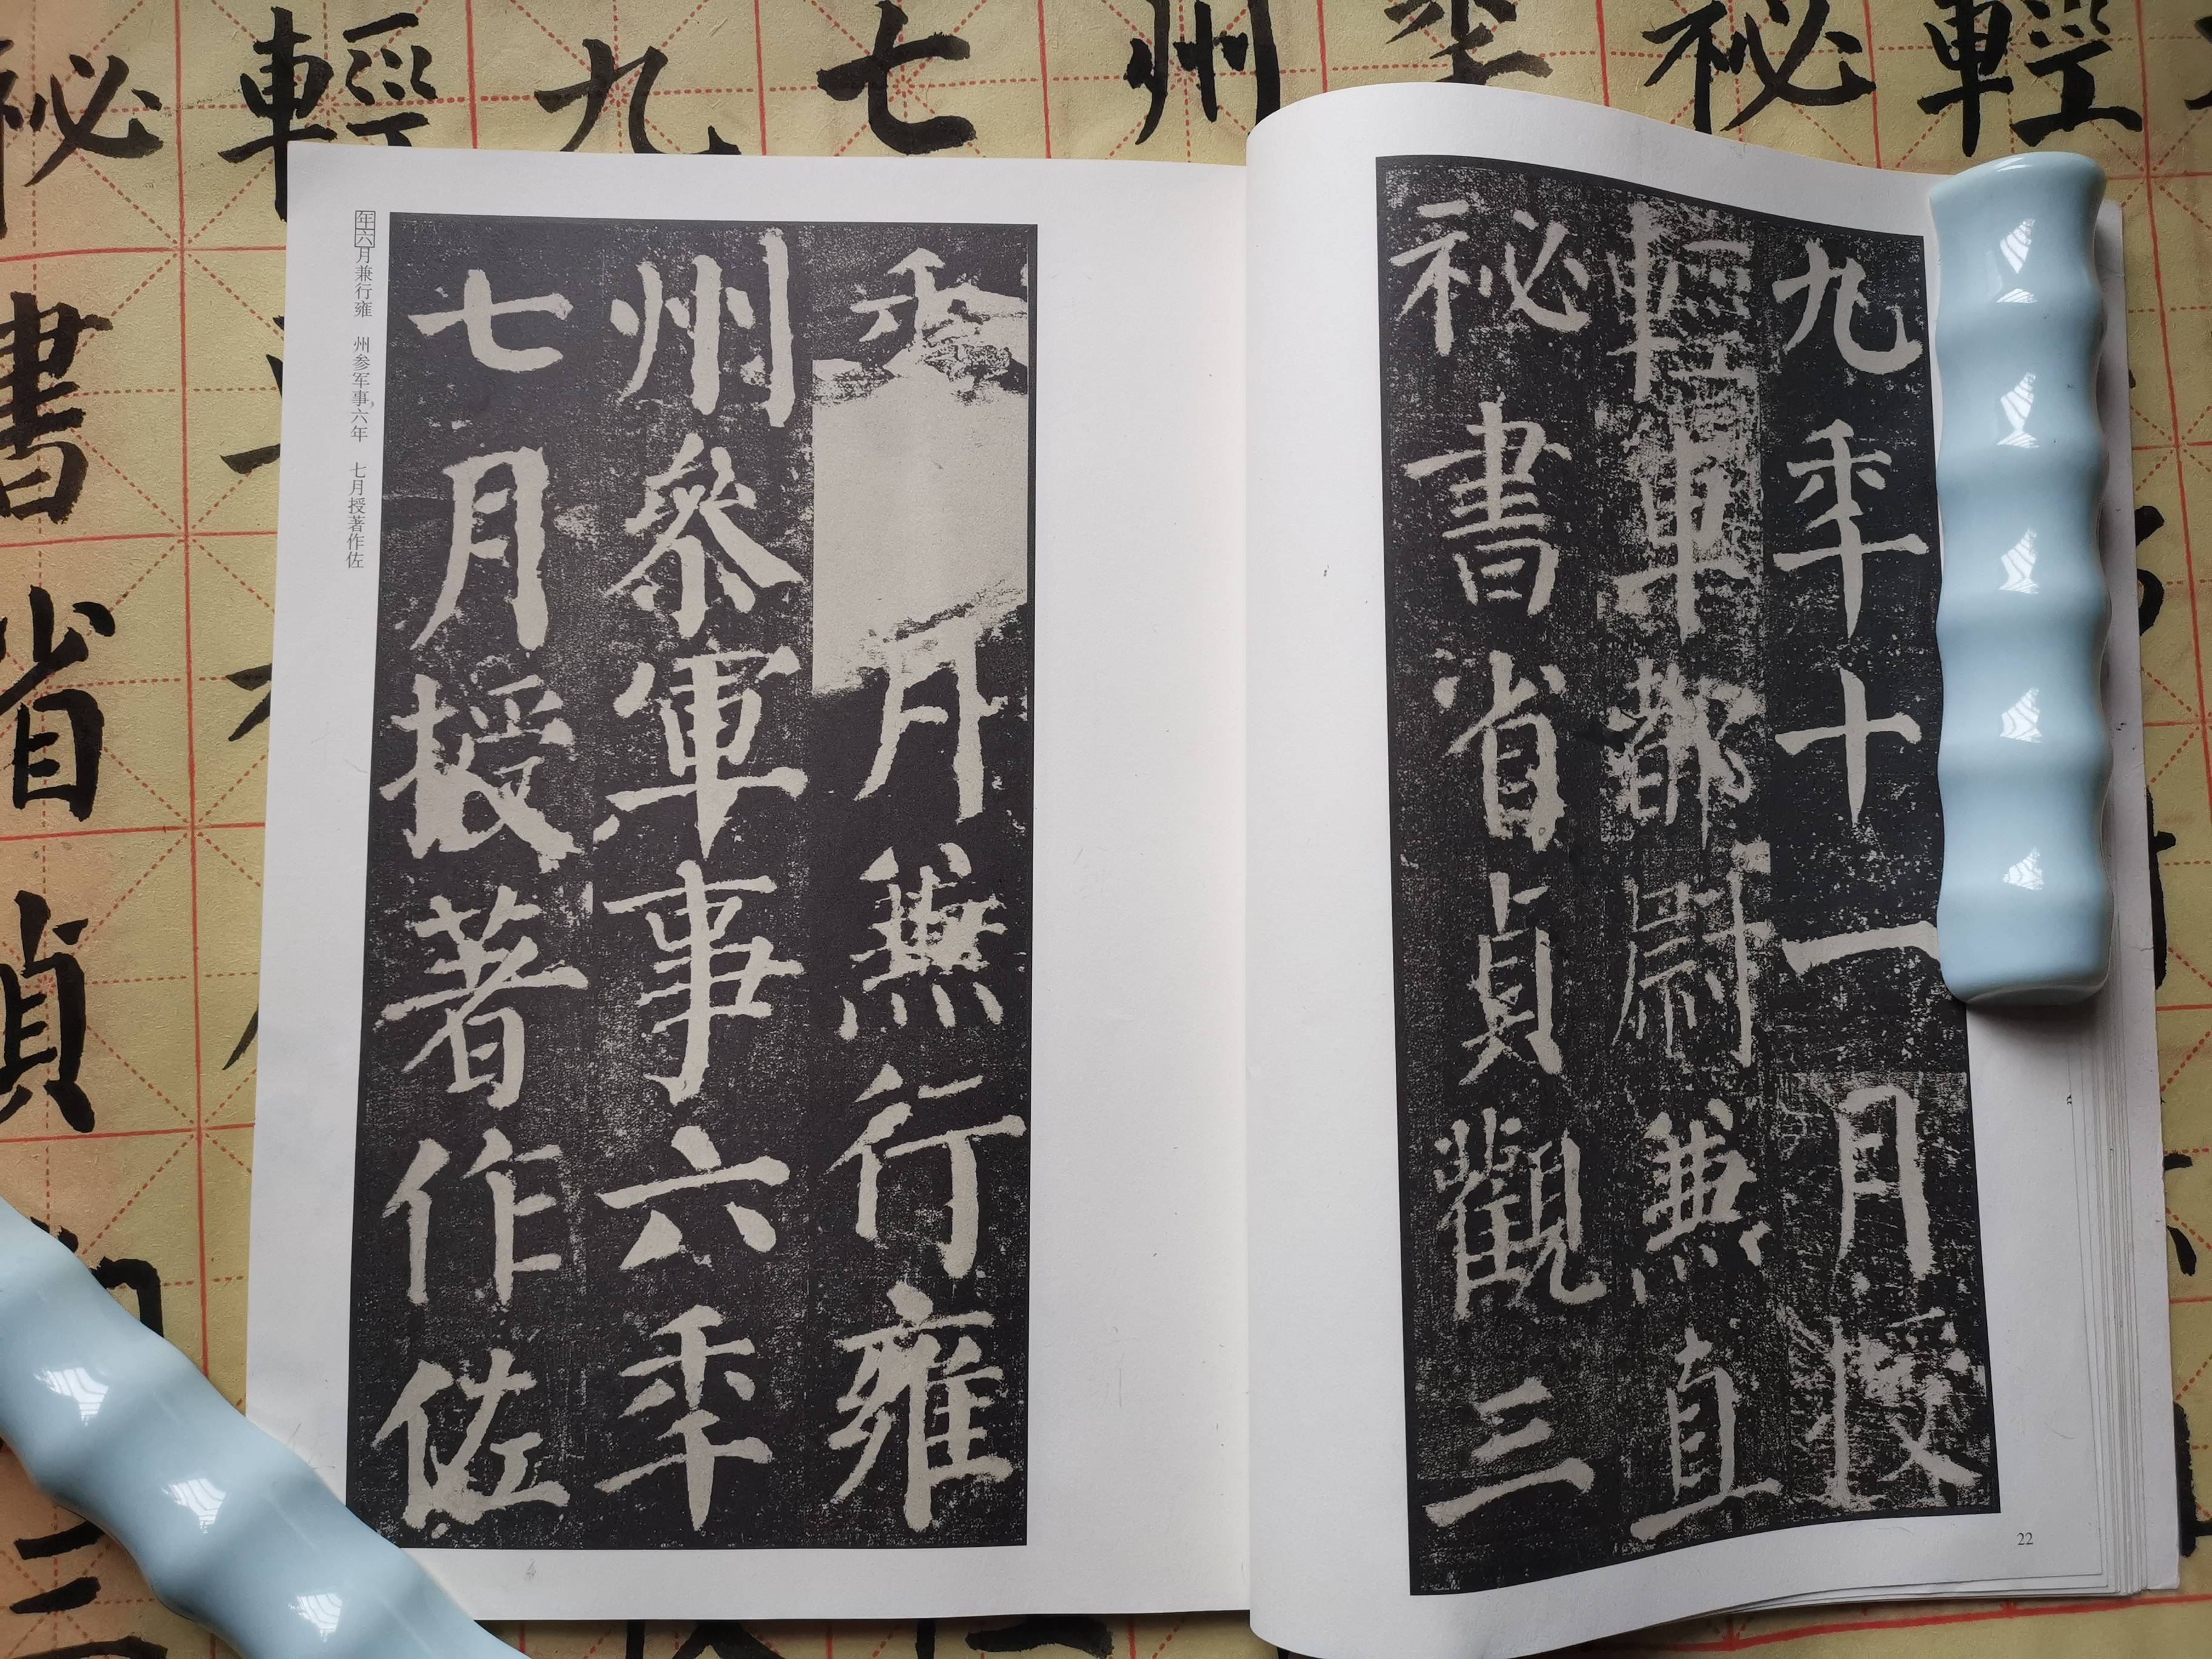 九年十一月授
輕車都尉兼直
秘書省貞觀三
22
年
月兼行雍
州參軍事六年
七月授著作佐
年六月兼行雍 州参军事,六年 七月授著作佐
秘 輕 九 七 州 年 秘 輕
書
省
貞
三